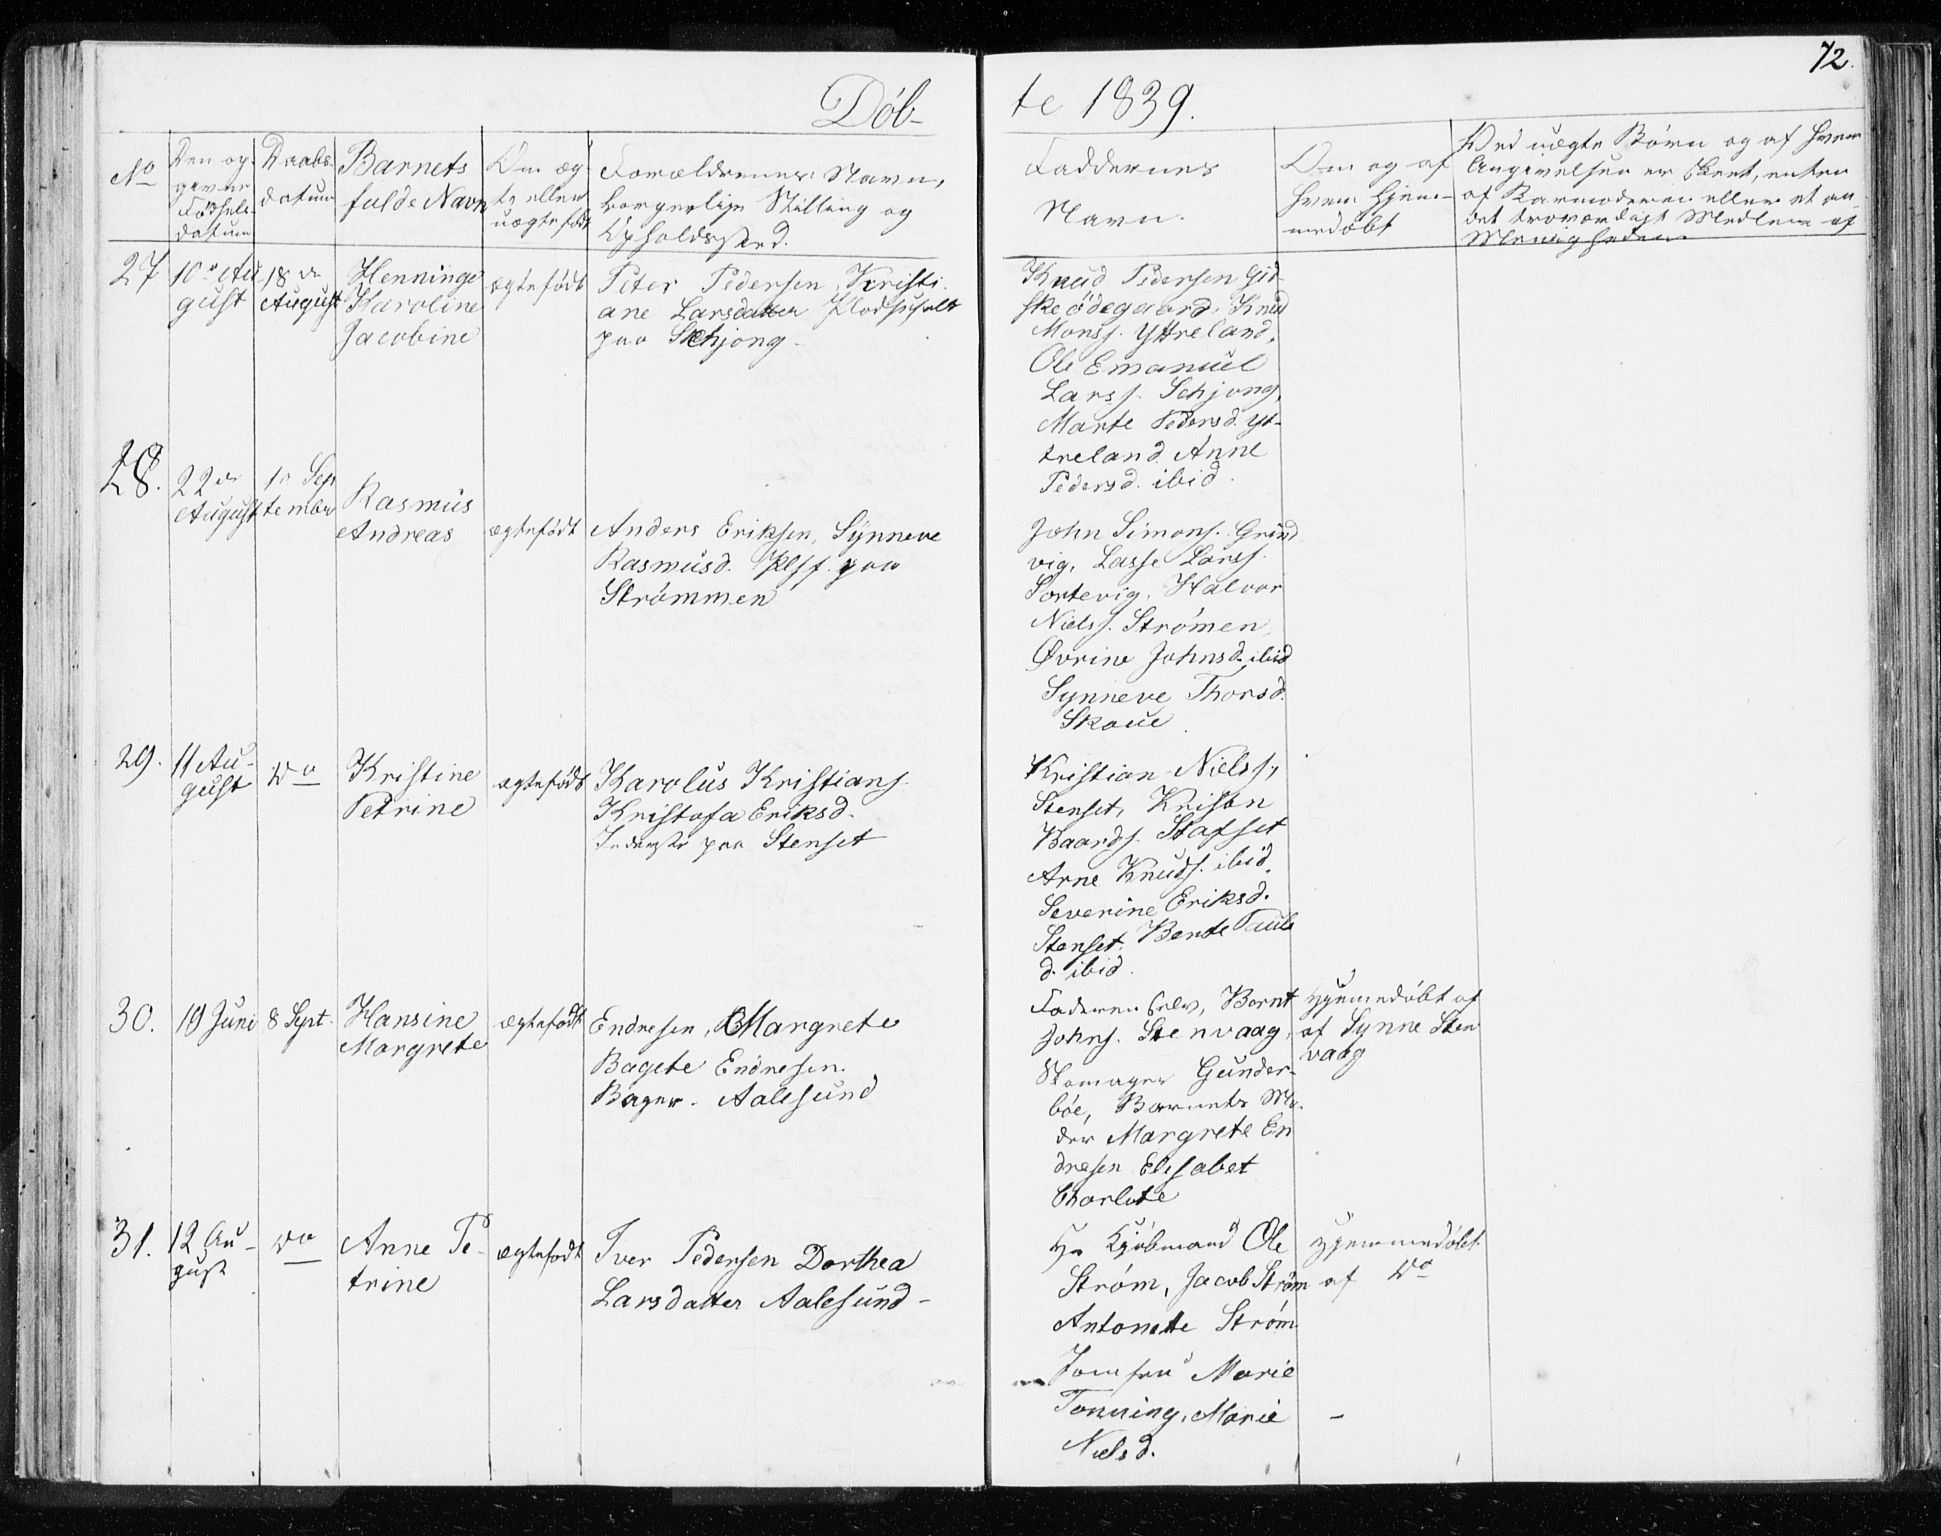 72.
Döb- te 1839.
No
Den op
givne
Födsels
datum
Daabs
datum
Barnets
fulde Navn
Om æg
te eller
uægtefödt
Forældrenes Navn,
borgerlige Stilling og
Opholdssted.
Faddernes
Navn.
Om og af
hvem hjem-
medöbt
Ved uægte Börn og af hvem
Angivelsen er skeet, enten
af Barnmoderen eller et an
det troværdigt Medlem af
Menigheden
27
10de Au
gust
18de
August
Henninge
Karoline
Jacobine
ægtefödt
Peter Pedersen, Kristi-
ane Larsdatter Pladsfolk
paa Schjong
Knud Pedersen Gid-
ske ödegaard. Knud
Monss. Yttreland.
Ole Emanuel
Larss. Schjong,
Marte Pedersd. Yt-
treland. Anne
Pedersd. ibid.
28.
22de
August
1ste Sep
tember
Rasmus
Andreas
ægtefödt
Anders Eriksen, Synneve
Rasmusd. Plff. paa
Strömmen
John Simons. Grind
vig, Lasse Larss.
Sortevig. Halvor
Nielss. Strömen,
Øvrine Johnsd. ibid
Synneve Thorsd.
Skoue.
29.
11 Au-
gust
Do
Kristine
Petrine
ægtefödt
Karolus Kristians.
Kristofa Eriksd.
Inderste paa Stenset
Kristian Nielss.,
Stenset,
Baards. Stafset
Arne Knuds. ibid.
Severine Eriksd.
Stenset. Bente Pauls
d. ibid.
30.
19 Juni
8 Sept.
Hansine
Margrete
ægtefödt
Endresen, Margrete
Bagete Endresen.
Bager. Aalesund
Faderen selv, Bernt
Johns. Stenvaag,
Skomager Gunder-
böe, Barnets Mo-
der Margrete En
dresen Elisabet
Charlote
Hjemmedöbt af
af Synne Sten
vaag
31.
12 Au-
gust
Do
Anne Pe-
trine
ægtefödt
Iver Pedersen Dorthea
Larsdatter Aalesund-
Hr Kjöbmand Ole
Ström, Jacob Ström
Antonette Ström
Jomfru Marie
Tonning, Marie
Nielsd.
Hjemmedöbt
af Do
-